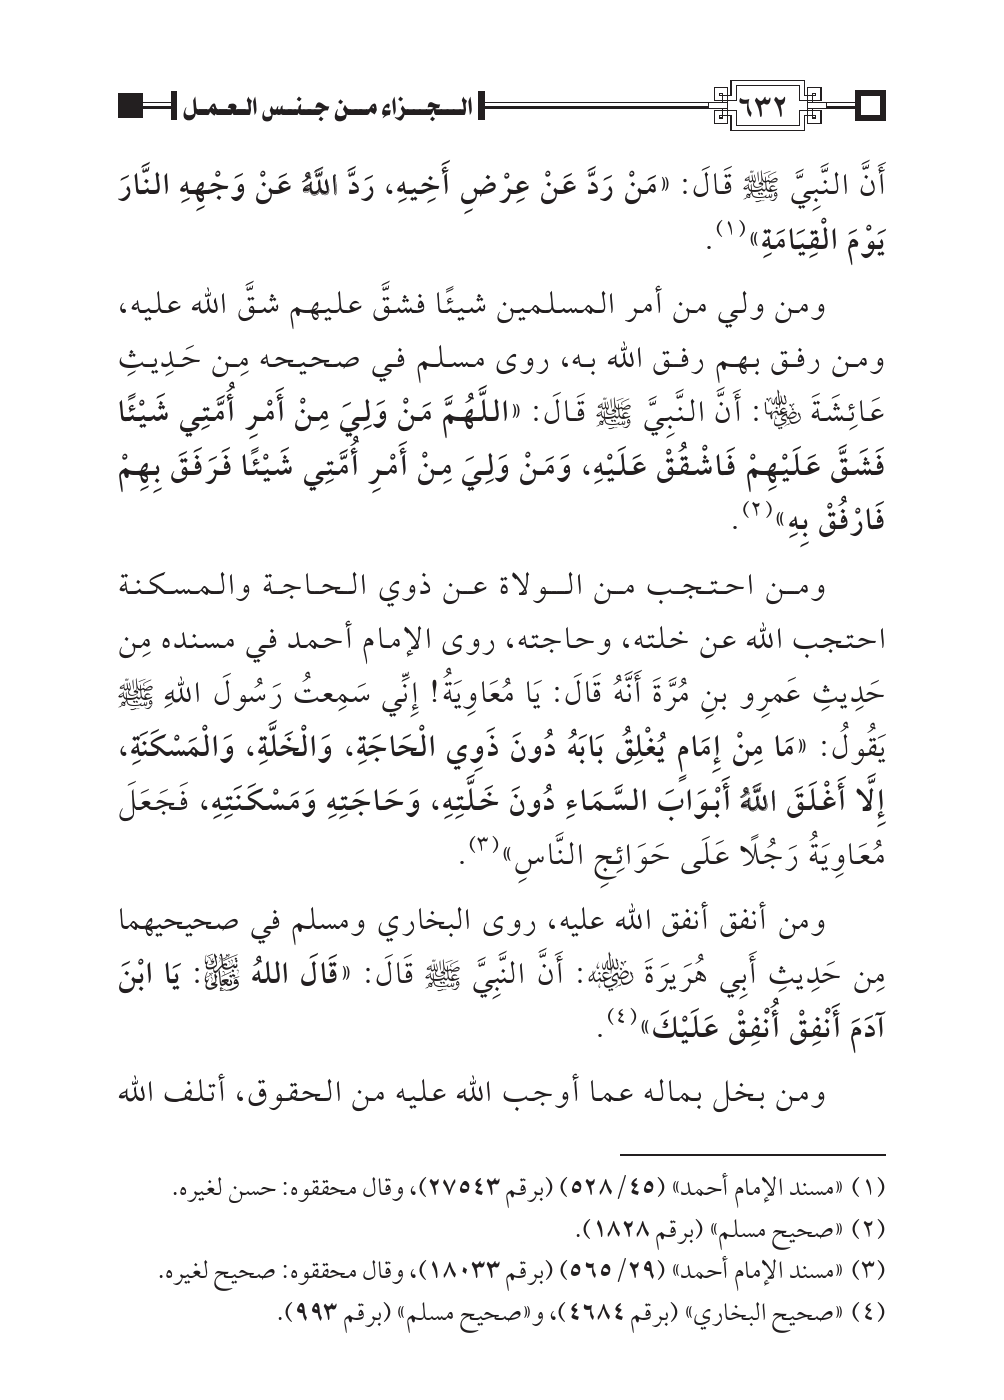 ٦٣٢
الـجـزاء مـن جـنـس الـعـمـل
أَنَّ النَّبِيَّ ﷺ قَالَ: «مَنْ رَدَّ عَنْ عِرْضِ أَخِيهِ، رَدَّ اللَّهُ عَنْ وَجْهِهِ النَّارَ
يَوْمَ الْقِيَامَةِ»(١).
ومن ولي من أمر المسلمين شيئًا فشقَّ عليهم شقَّ الله عليه،
ومن رفق بهم رفق الله به، روى مسلم في صحيحه مِن حَدِيثِ
عَائِشَةَ رضي الله عنها: أَنَّ النَّبِيَّ ﷺ قَالَ: «اللَّهُمَّ مَنْ وَلِيَ مِنْ أَمْرِ أُمَّتِي شَيْئًا
فَشَقَّ عَلَيْهِمْ فَاشْقُقْ عَلَيْهِ، وَمَنْ وَلِيَ مِنْ أَمْرِ أُمَّتِي شَيْئًا فَرَفَقَ بِهِمْ
فَارْفُقْ بِهِ»(٢).
ومن احتجب من الولاة عن ذوي الحاجة والمسكنة
احتجب الله عن خلته، وحاجته، روى الإمام أحمد في مسنده مِن
حَدِيثِ عَمرِو بنِ مُرَّةَ أَنَّهُ قَالَ: يَا مُعَاوِيَةُ! إِنِّي سَمِعتُ رَسُولَ اللهِ ﷺ
يَقُولُ: «مَا مِنْ إِمَامٍ يُغْلِقُ بَابَهُ دُونَ ذَوِي الْحَاجَةِ، وَالْخَلَّةِ، وَالْمَسْكَنَةِ،
إِلَّا أَغْلَقَ اللَّهُ أَبْوَابَ السَّمَاءِ دُونَ خَلَّتِهِ، وَحَاجَتِهِ وَمَسْكَنَتِهِ، فَجَعَلَ
مُعَاوِيَةُ رَجُلًا عَلَى حَوَائِجِ النَّاسِ»(٣).
ومن أنفق أنفق الله عليه، روى البخاري ومسلم في صحيحيهما
مِن حَدِيثِ أَبِي هُرَيرَةَ رضي الله عنه: أَنَّ النَّبِيَّ ﷺ قَالَ: «قَالَ اللهُ تبارك وتعالى: يَا ابْنَ
آدَمَ أَنْفِقْ أُنْفِقْ عَلَيْكَ»(٤).
ومن بخل بماله عما أوجب الله عليه من الحقوق، أتلف الله
(١) «مسند الإمام أحمد» (٤٥/ ٥٢٨) (برقم ٢٧٥٤٣)، وقال محققوه: حسن لغيره.
(٢) «صحيح مسلم» (برقم ١٨٢٨).
(٣) «مسند الإمام أحمد» (٢٩/ ٥٦٥) (برقم ١٨٠٣٣)، وقال محققوه: صحيح لغيره.
(٤) «صحيح البخاري» (برقم ٤٦٨٤)، و«صحيح مسلم» (برقم ٩٩٣).